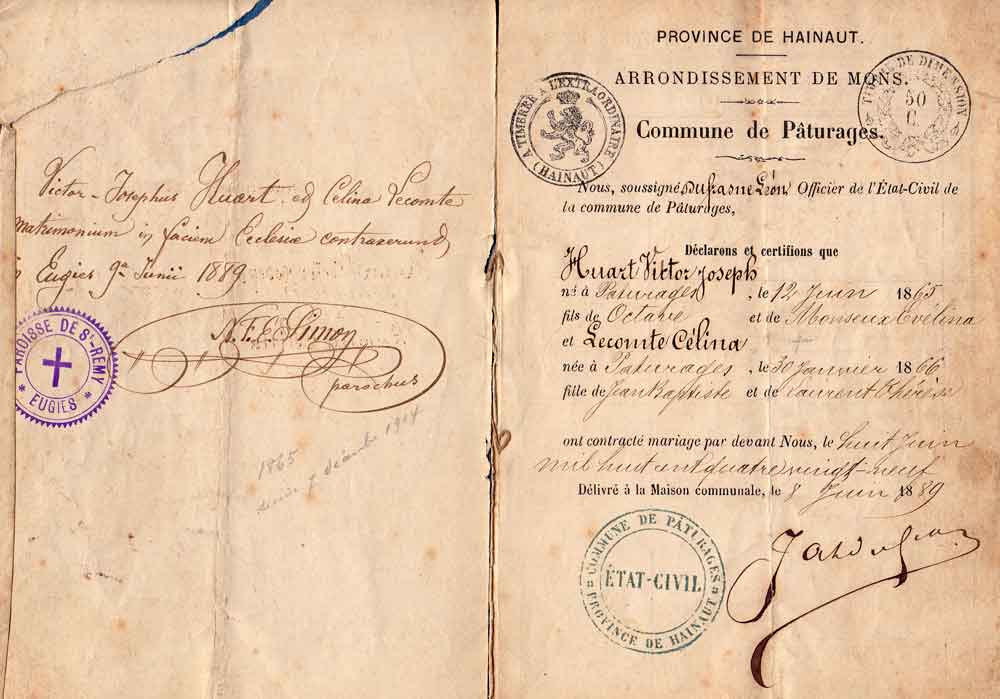 Victor-Josephus Huart, et Celina Lecomte
matrimonium in faciem Ecclesiæ contraxerunt,
Eugies 9a Junii 1889.
N. F. C. Simon
parochus
PAROISSE DE St-REMY
EUGIES
1865
décembre 1914
PROVINCE DE HAINAUT.
ARRONDISSEMENT DE MONS.
Commune de Pâturages.
A TIMBRER A L'EXTRAORDINAIRE
(HAINAUT)
TIMBRE DE DIMENSION
50
C.
Nous, soussigné Dufrasne Léon Officier de l'État-Civil de
la commune de Pâturages,
Déclarons et certifions que
Huart Victor Joseph
né à Paturages, le 12 Juin 1865
fils de Octave et de Monseux Evélina
et Lecomte Célina
née à Paturages, le 30 Janvier 1866
fille de Jean Baptiste et de Laurent Thérèse
ont contracté mariage par devant Nous, le huit Juin
mil huit cent quatre vingt-neuf
Délivré à la Maison communale, le 8 Juin 1889
COMMUNE DE PÂTURAGES
ÉTAT-CIVIL
PROVINCE DE HAINAUT